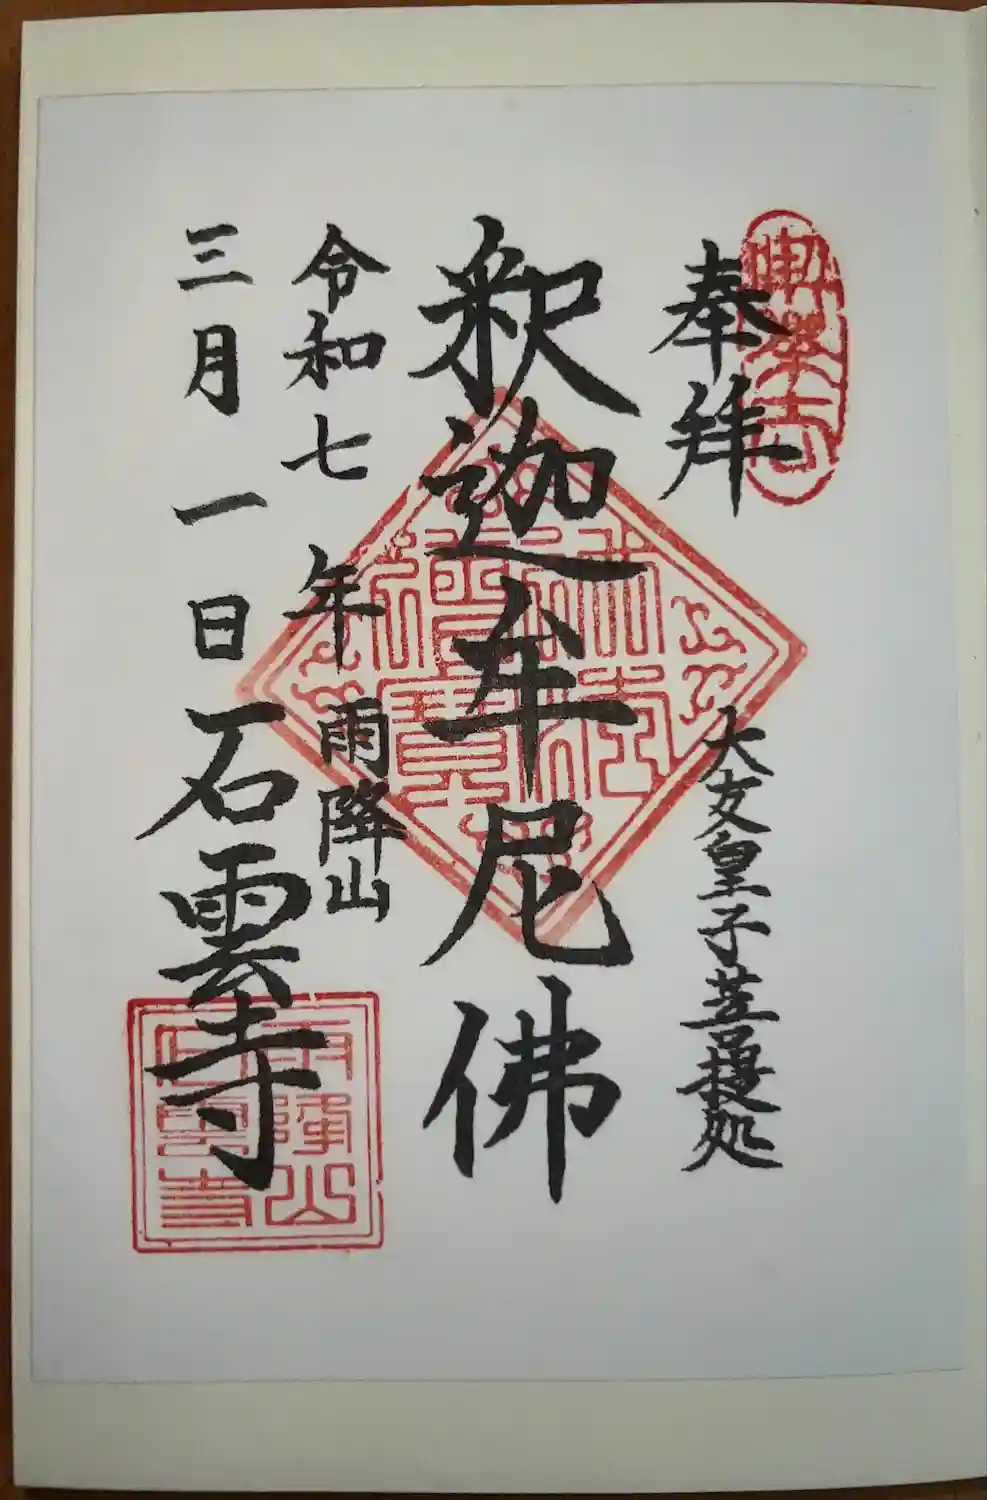 奉拜
大友皇子菩提処
釈迦牟尼佛
令和七年
雨降山
三月一日
石雲寺
雨降山
石雲寺